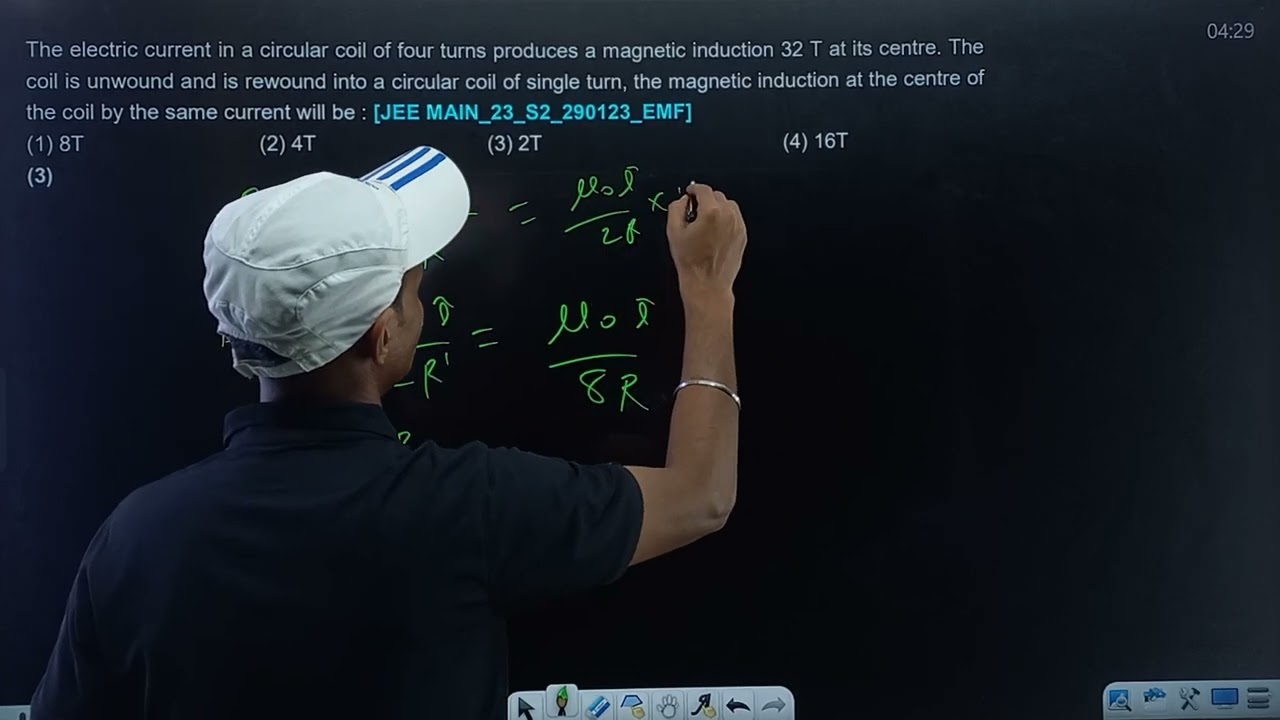 04:29
The electric current in a circular coil of four turns produces a magnetic induction 32 T at its centre. The
coil is unwound and is rewound into a circular coil of single turn, the magnetic induction at the centre of
the coil by the same current will be : [JEE MAIN_23_S2_290123_EMF]
(1) 8T (2) 4T (3) 2T (4) 16T
(3)
= μ₀i / 2R ×
i / R' = μ₀i / 8R